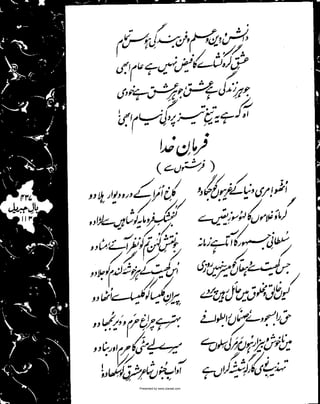 دانش و دین و علم و فن بندگیِ ہوس تمام
عشقِ گرہ کشاے کا فیض نہیں ہے عام ابھی
جوہرِ زندگی ہے عشق، جوہرِ عشق ہے خودی
آہ کہ ہے یہ تیغِ تیز پردگیِ نیام ابھی
فرمانِ خدا
(فرشتوں سے)
اٹھو مری دنیا کے غریبوں کو جگا دو
کاخِ امرا کے در و دیوار ہلا دو
گرماؤ غلاموں کا لہو سوزِ یقیں سے
کنجشکِ فرومایہ کو شاہیں سے لڑا دو
سلطانیِ جمہور کا آتا ہے زمانہ
جو نقشِ کہن تم کو نظر آئے مٹا دو
جس کھیت سے دہقاں کو میسر نہیں روزی
اس کھیت کے ہر خوشۂ گندم کو جلا دو
کیوں خالق و مخلوق میں حائل رہیں پردے
پیرانِ کلیسا کو کلیسا سے اٹھا دو
حق را بسجودے، صنماں را بطوافے
بہتر ہے چراغِ حرم و دیر بجھا دو
میں ناخوش و بیزار ہوں مرمر کی سلوں سے
میرے لیے مٹی کا حرم اور بنا دو
تہذیبِ نوی کارگہِ شیشہ گراں ہے
آدابِ جنوں شاعرِ مشرق کو سکھا دو
بالِ جبریل
Presented by www.ziaraat.com